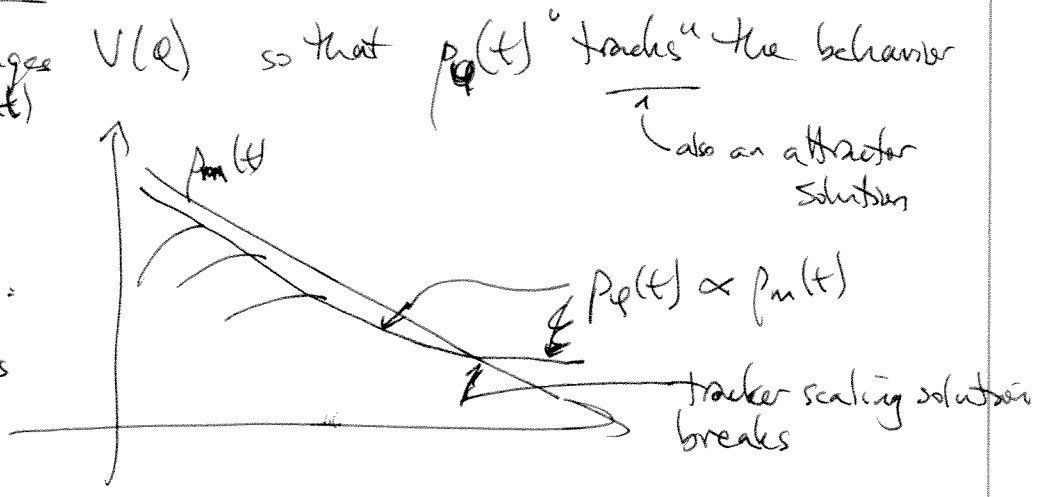 ges V(φ) so that ρφ(t) "tracks" the behavior
t)
also an attractor
solution
ρm(t)
ρφ(t) ∝ ρm(t)
s
tracker scaling solution
breaks